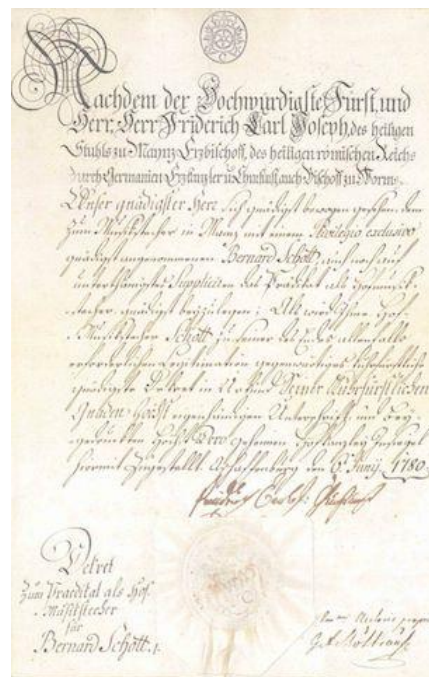 Nachdem der Hochwürdigste Fürst, und
Herr, Herr Friderich Carl Joseph, des heiligen
Stuhls zu Maynz Erzbischoff, des heiligen römischen Reichs
durch Germanien Erzkanzler u. Churfürst auch Bischoff zu Worms.
Unser gnädigster Herr sich gnädigst bewogen gesehen dem
zum Musikstecher in Mainz mit einem Privilegio exclusivo
gnädigst angenommenen Bernard Schott, auch noch auf
unterthänigstes Suppliciren das Prädikat als Hofmusik-
stecher gnädigst beizulegen; Als wird Ihme Hof-
Musikstecher Schott zu seiner des Endes allenfalls
erforderlichen Legitimation gegenwärtiges kuhrfürstliche
gnädigste Dekret in Urkund Seiner Kuhrfürstlichen
Gnaden höchst eigenhändigen Unterschrift und bey-
gedruckten Hofkanzley Insiegel
hiermit zugestellt. Aschaffenburg den 6. Junij 1780
Friedrich Carl Jos. Churfürst
Dekret
Zum Praedikat als Hof
Musikstecher
für
Bernard Schott.